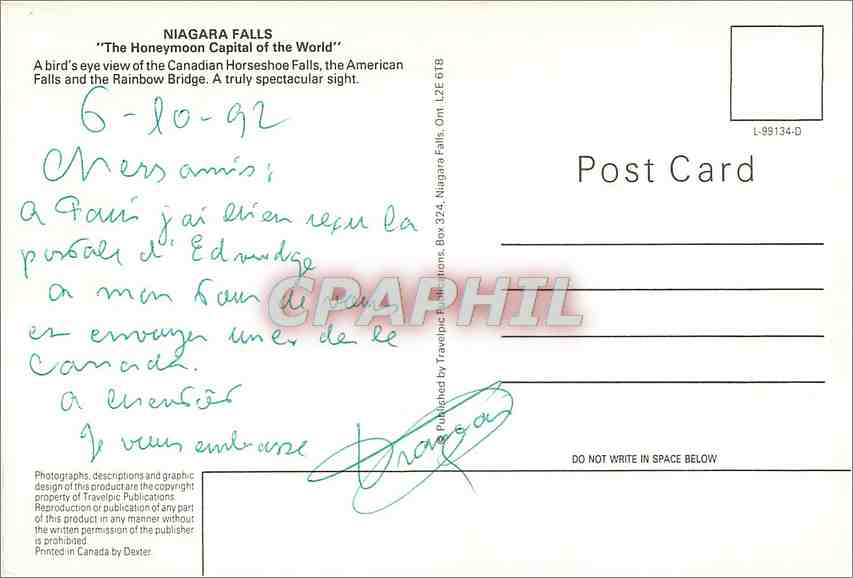 NIAGARA FALLS
"The Honeymoon Capital of the World"
A bird's eye view of the Canadian Horseshoe Falls, the American
Falls and the Rainbow Bridge. A truly spectacular sight.
6-10-92
Chers amis;
A Paris j'ai bien reçu la
postale d'
A mon tour de vous
en envoyer une de le
Canada.
A bientôt
Je vous embrasse
Photographs, descriptions and graphic
design of this product are the copyright
property of Travelpic Publications.
Reproduction or publication of any part
of this product in any manner without
the written permission of the publisher
is prohibited.
Printed in Canada by Dexter.
Published by Travelpic Publications, Box 324, Niagara Falls, Ont. L2E 6T8
L-99134-D
Post Card
DO NOT WRITE IN SPACE BELOW
CPAPHIL